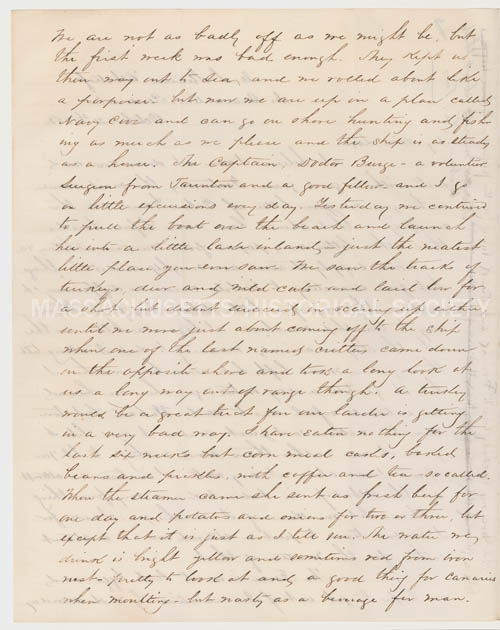 We are not as badly off as we might be, but
the first week was bad enough. They kept us
their way out to sea and we rolled about like
a porpoise. but now we are up in a place called
Navy Cove and can go on shore hunting and fish-
ing as much as we please and the ship is as steady
as a house. The Captain, Doctor Burge - a volunteer
Surgeon from Taunton and a good fellow and I go
on little excursions every day. Yesterday we contrived
to pull the boat over the beach and launch
her into a little lake inland - just the neatest
little place you ever saw. We saw the tracks of
turkeys, deer and wild cats and laid low for
a shot but didnt succeed in scaring up either
until we were just about coming off to the ship
when one of the last named critters came down
on the opposite shore and took a long look at
us a long way out of range though. A turkey
would be a great treat for our larder is getting
in a very bad way. I have eaten nothing for the
last six weeks but corn meal cakes, boiled
beans and pickles, with coffee and tea so called.
When the steamer came she sent us fresh beef for
one day and potatoes and onions for two or three, but
except that it is just as I tell you. The water we
drink is bright yellow and sometimes red from iron
rust - pretty to look at and a good thing for canaries
when moulting - but nasty as a beverage for man.
MASSACHUSETTS HISTORICAL SOCIETY